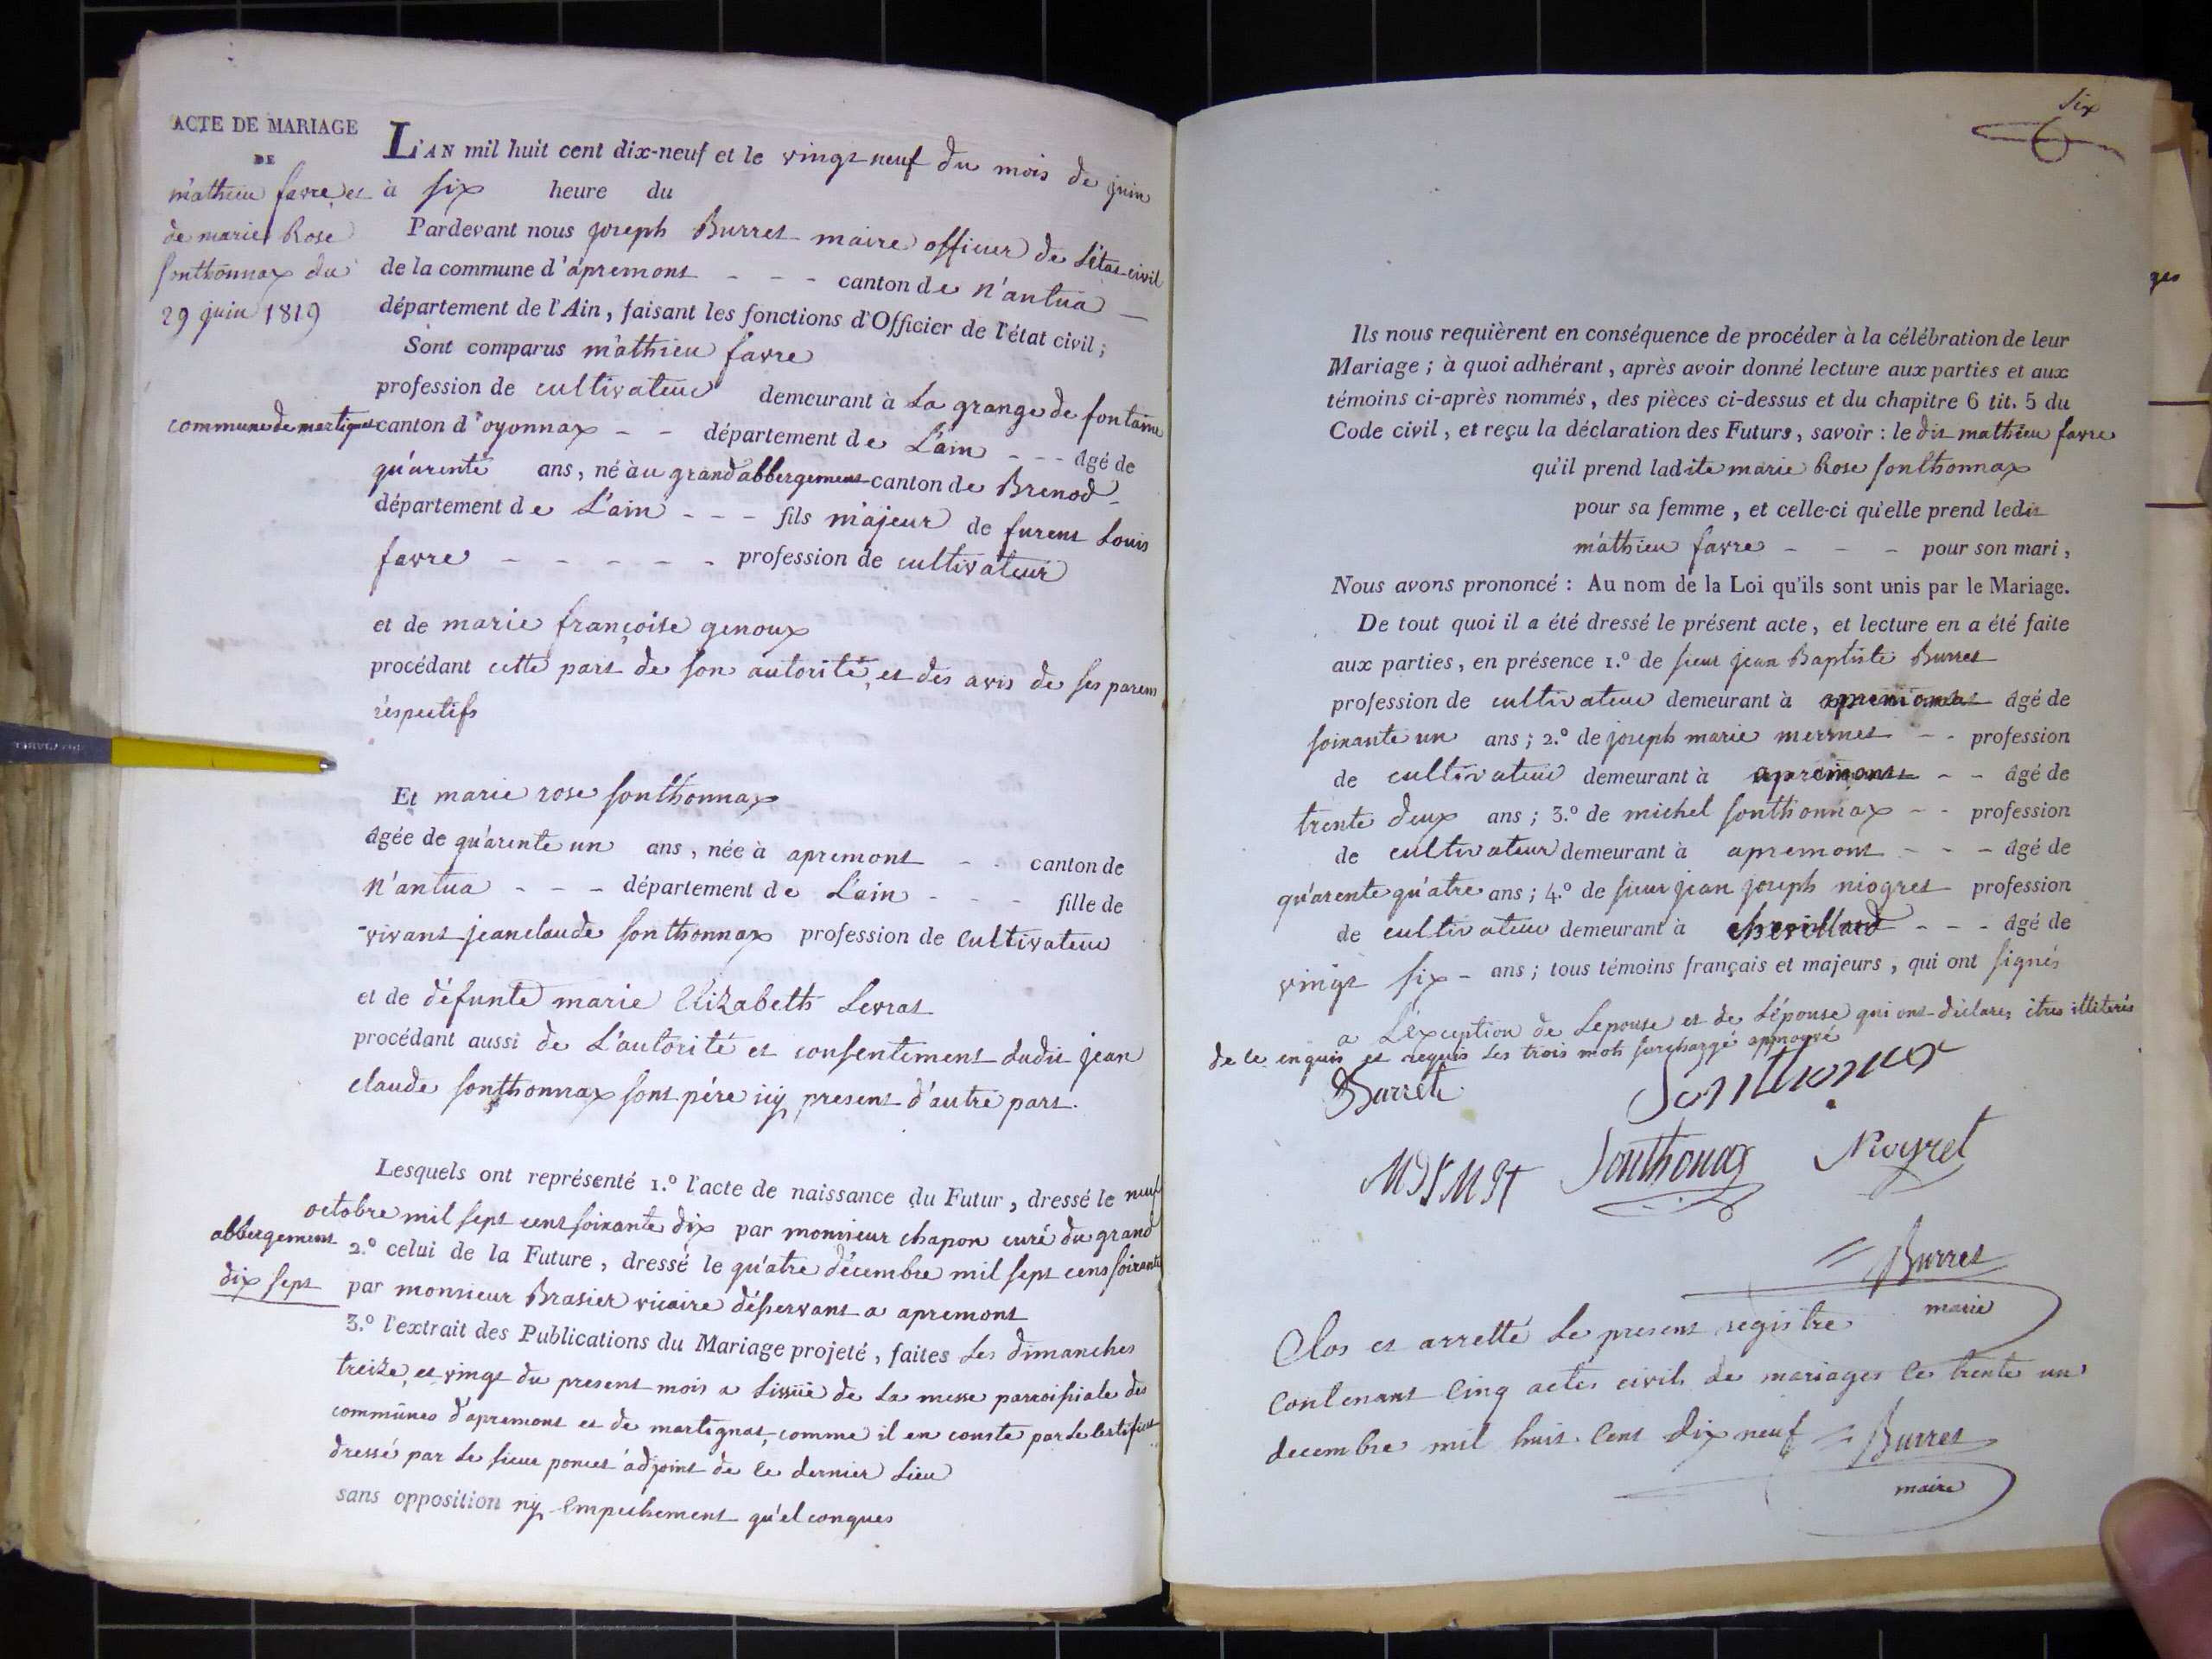 ACTE DE MARIAGE
DE
mathieu favre et
de marie Rose
sonthonnax du
29 juin 1819
L'AN mil huit cent dix-neuf et le vingt neuf du mois de juin
à six heure du
Pardevant nous joseph Burret maire officier de L'état civil
de la commune d'apremont - - - canton de n'antua -
département de l'Ain, faisant les fonctions d'Officier de l'état civil;
Sont comparus mathieu favre
profession de cultivateur demeurant à La grange de fontaine
commune de martignat canton d'oyonnax - - département de L'ain - - - âgé de
qu'arente ans, né à au grand abbergement canton de Brenod -
département de L'ain - - - fils majeur de furent Louis
favre - - - - - - profession de cultivateur
et de marie françoise genoux
procédant cette part de son autorité, et des avis de ses parens
réspectifs
Et marie rose sonthonnax
âgée de qu'arente un ans, née à apremont - - canton de
n'antua - - - département de L'ain - - - fille de
vivant jean claude sonthonnax profession de Cultivateur
et de défunte marie Elizabeth Levrat
procédant aussi de L'autorité et consentement dudit jean
claude sonthonnax sont pére icy present d'autre part.
Lesquels ont représenté 1.º l'acte de naissance du Futur, dressé le neuf
octobre mil sept cent soixante dix par monsieur chapon curé du grand
abbergement 2.º celui de la Future, dressé le qu'atre décembre mil sept cens soixante
dix sept par monsieur Brasier vicaire déservant a apremont
3.º l'extrait des Publications du Mariage projeté, faites Les dimanches
treize, et vingt du present mois a L'issüe de La messe parroissiale des
commünes d'apremont et de martignat, comme il en conste par Le Certificat
dressé par Le sieur poncet adjoint de Ce dernier Lieu
sans opposition ny Empechement qu'elconques
six
6
Ils nous requièrent en conséquence de procéder à la célébration de leur
Mariage; à quoi adhérant, après avoir donné lecture aux parties et aux
témoins ci-après nommés, des pièces ci-dessus et du chapitre 6 tit. 5 du
Code civil, et reçu la déclaration des Futurs, savoir: le dit mathieu favre
qu'il prend ladite marie Rose sonthonnax
pour sa femme, et celle-ci qu'elle prend ledit
mathieu favre - - - pour son mari,
Nous avons prononcé: Au nom de la Loi qu'ils sont unis par le Mariage.
De tout quoi il a été dressé le présent acte, et lecture en a été faite
aux parties, en présence 1.º de sieur jean Baptiste Burret
profession de cultivateur demeurant à apremont âgé de
soixante un ans; 2.º de joseph marie mermet - - profession
de cultivateur demeurant à apremont - - âgé de
trente deux ans; 3.º de michel sonthonnax - - profession
de cultivateur demeurant à apremont - - - âgé de
qu'arente qu'atre ans; 4.º de sieur jean joseph niogret profession
de cultivateur demeurant à chevillard - - - âgé de
vingt six - ans; tous témoins français et majeurs, qui ont signés
a L'éxception de Lepouse et de L'épouse qui ont déclares êtres illiterés
de ce enquis et requis Les trois mots surchargé approuvé
Burret Sonthonax
Sonthonax Niogret
= Burret
maire
Clos et arretté Le present registre
Contenant Cinq actes civils de mariages Ce trente un
decembre mil huit Cent dix neuf = Burret
maire